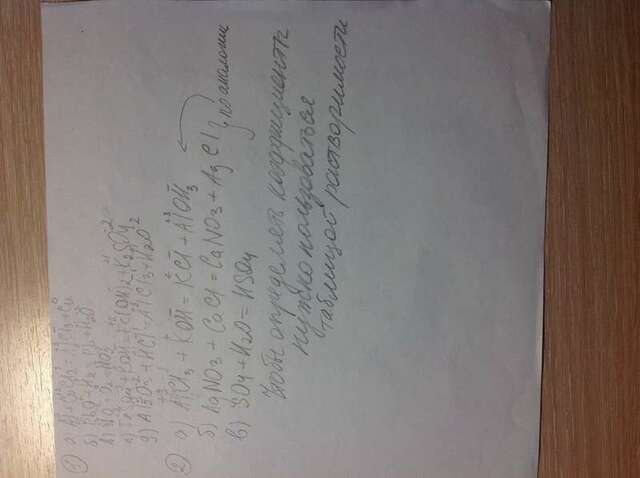 ① а) Al + CuCl2 = AlCl3 + Cu
б) PbO + H2 = Pb + H2O
в)
г) + KOH = (OH)2 + K2SO4
д) Al2O3 + HCl = AlCl3 + H2O
② а) AlCl3 + KOH = KCl + AlOH3
б) AgNO3 + CaCl = CaNO3 + AgCl } по аналогии
в) SO4 + H2O = HSO4
Чтобы определять коэффициенты
нужно пользоваться
таблицой растворимости